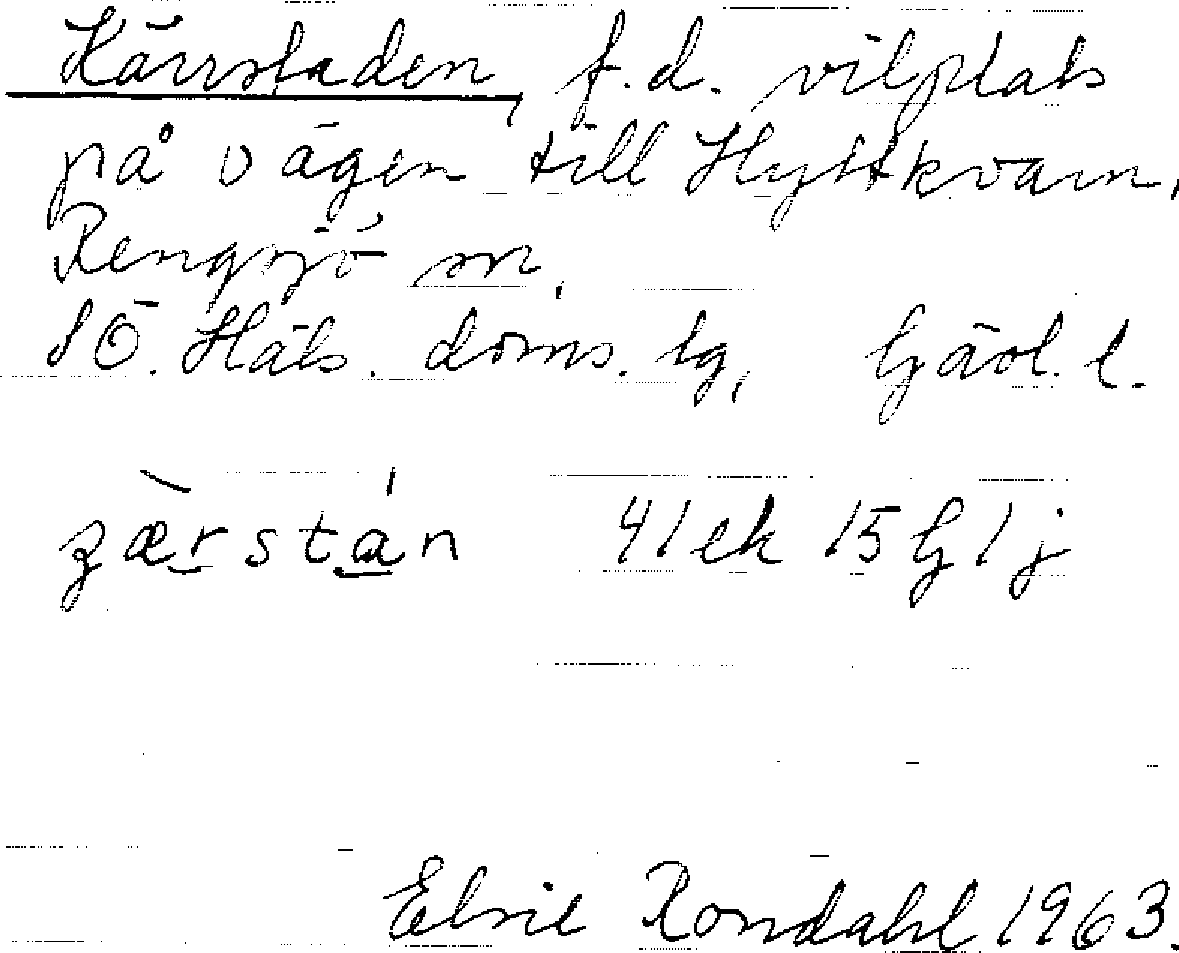 Kärrstaden, f.d. vilplats
på vägen till Hyttkvarn,
Rengsjö sn,
SÖ. Häls. doms. lg, Gävl. l.
zæ̀rstán 41 ek 15 G 1 j
Elsie Rondahl 1963.